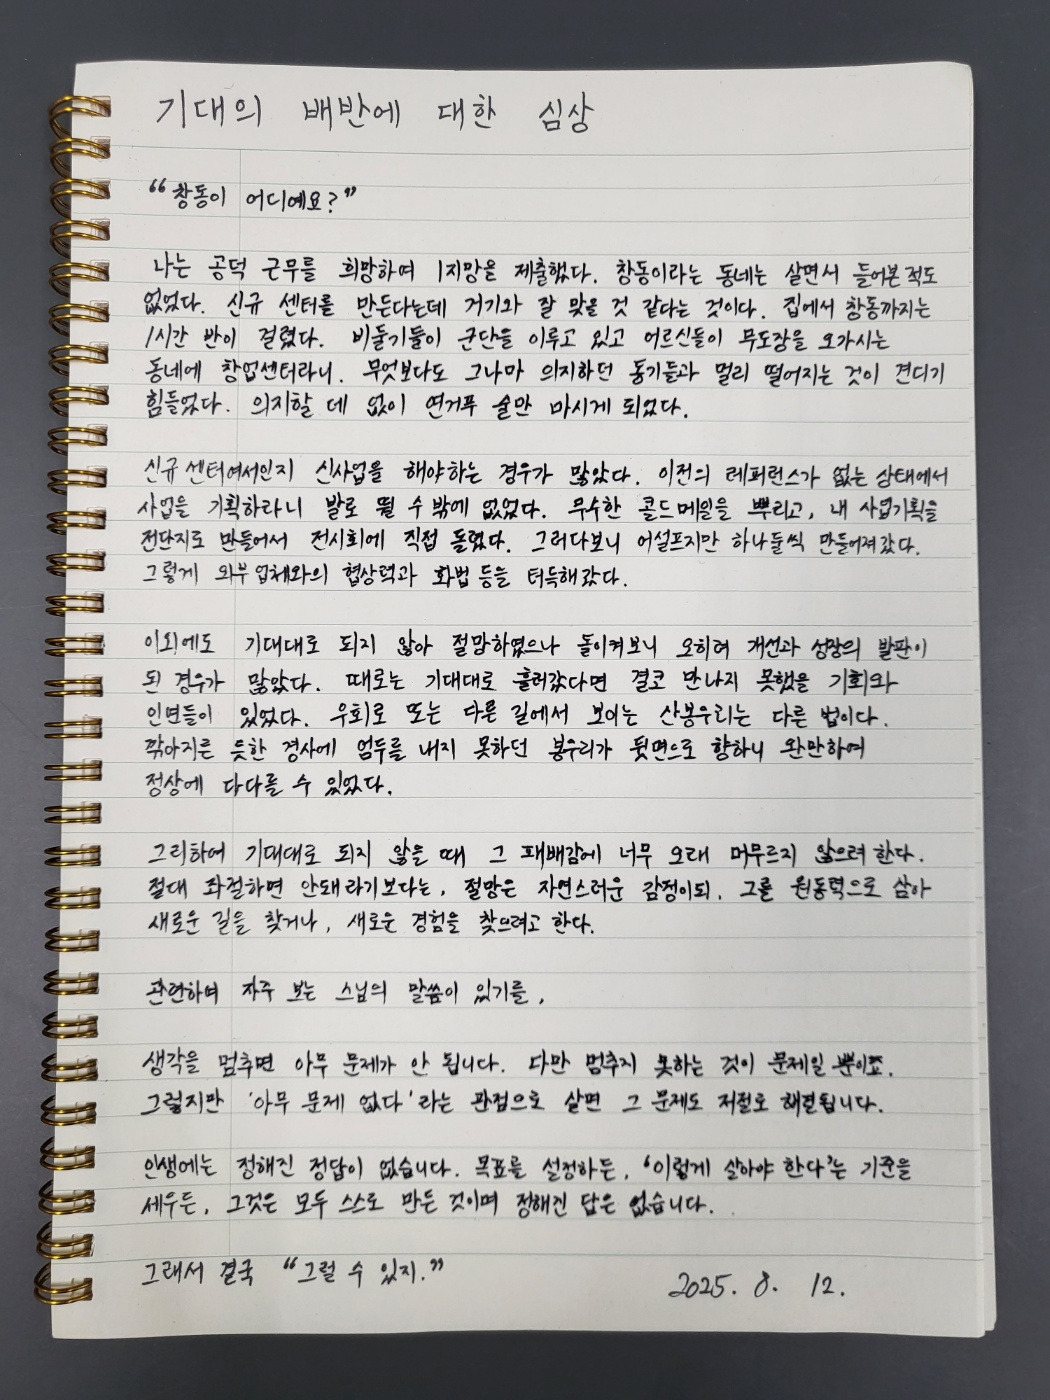 기대의 배반에 대한 심상
“창동이 어디예요?”
나는 공덕 근무를 희망하여 1지망을 제출했다. 창동이라는 동네는 살면서 들어본 적도
없었다. 신규 센터를 만든다는데 거기와 잘 맞을 것 같다는 것이다. 집에서 창동까지는
1시간 반이 걸렸다. 비둘기들이 군단을 이루고 있고 어르신들이 무도장을 오가시는
동네에 창업센터라니. 무엇보다도 그나마 의지하던 동기들과 멀리 떨어지는 것이 견디기
힘들었다. 의지할 데 없이 연거푸 술만 마시게 되었다.
신규 센터여서인지 신사업을 해야하는 경우가 많았다. 이전의 레퍼런스가 없는 상태에서
사업을 기획하라니 발로 뛸 수 밖에 없었다. 무수한 콜드메일을 뿌리고, 내 사업기획을
전단지로 만들어서 전시회에 직접 돌렸다. 그러다보니 어설프지만 하나둘씩 만들어져갔다.
그렇게 외부 업체와의 협상력과 화법 등을 터득해갔다.
이외에도 기대대로 되지 않아 절망하였으나 돌이켜보니 오히려 개선과 성장의 발판이
된 경우가 많았다. 때로는 기대대로 흘러갔다면 결코 만나지 못했을 기회와
인연들이 있었다. 우회로 또는 다른 길에서 보이는 산봉우리는 다른 법이다.
깎아지른 듯한 경사에 엄두를 내지 못하던 봉우리가 뒷면으로 향하니 완만하여
정상에 다다를 수 있었다.
그리하여 기대대로 되지 않을 때 그 패배감에 너무 오래 머무르지 않으려 한다.
절대 좌절하면 안돼 라기보다는, 절망은 자연스러운 감정이되, 그를 원동력으로 삼아
새로운 길을 찾거나, 새로운 경험을 찾으려고 한다.
관련하여 자주 보는 스님의 말씀이 있기를,
생각을 멈추면 아무 문제가 안 됩니다. 다만 멈추지 못하는 것이 문제일 뿐이죠.
그렇지만 '아무 문제 없다'라는 관점으로 살면 그 문제도 저절로 해결됩니다.
인생에는 정해진 정답이 없습니다. 목표를 설정하든, '이렇게 살아야 한다'는 기준을
세우든, 그것은 모두 스스로 만든 것이며 정해진 답은 없습니다.
그래서 결국 “그럴 수 있지.”
2025. 8. 12.